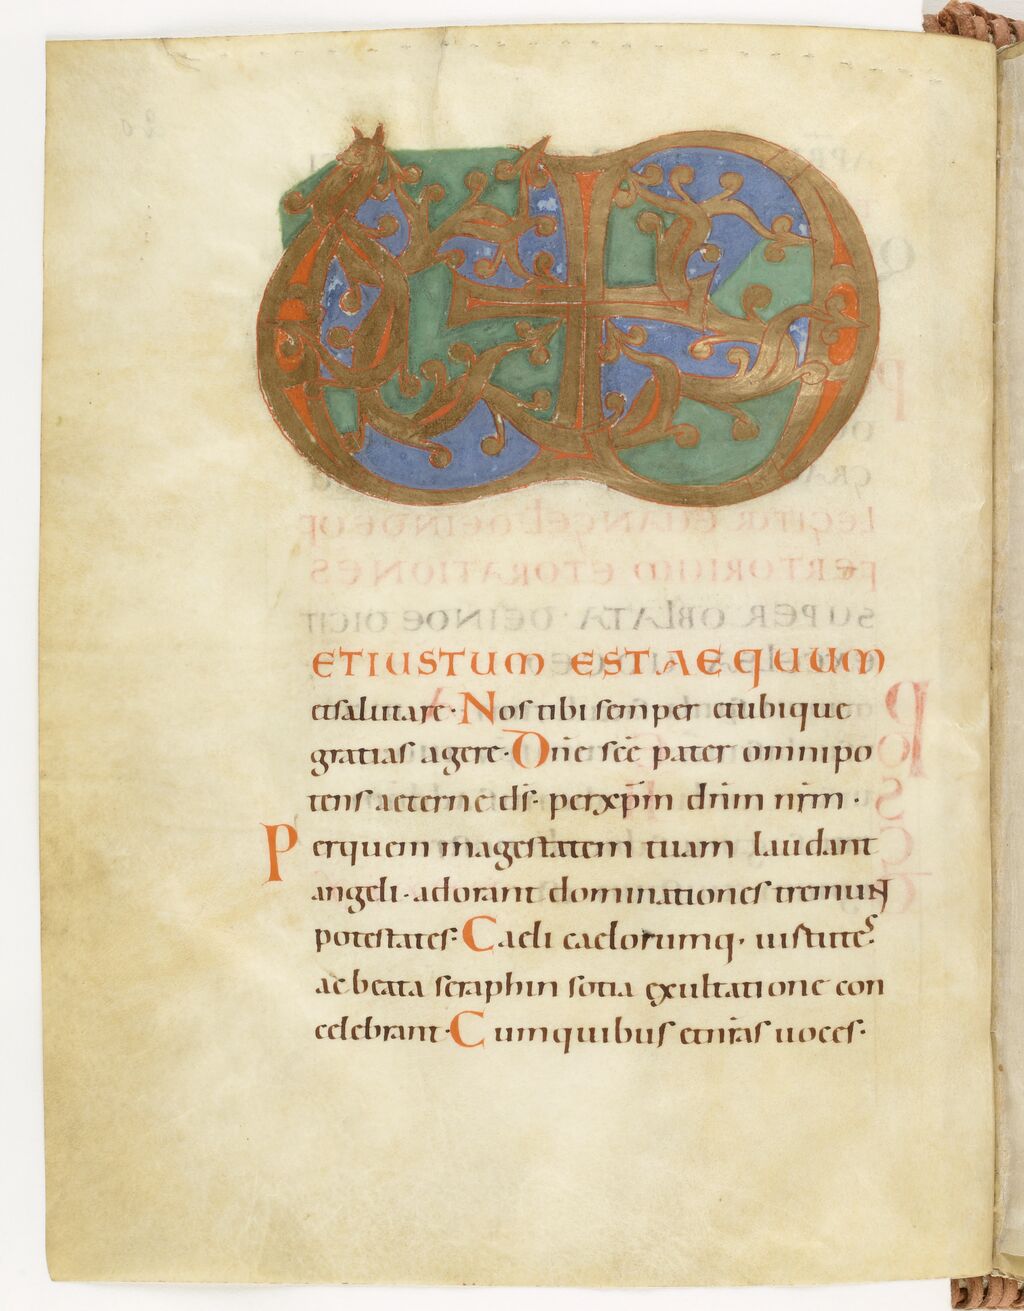 VD
ETIUSTUM EST AEQUUM
etsalutare · Nos tibi semper etubique
gratias agere · Dñe sc̄e pater omnipo
tens aeterne d̄s · per xp̄m dn̄m nr̄m ·
Perquem magestatem tuam laudant
angeli · adorant dominationes tremunt
potestates · Caeli caelorumq · uirtutes
ac beata seraphin sotia exultatione con
celebrant · Cum quibus etnr̄as uoces ·